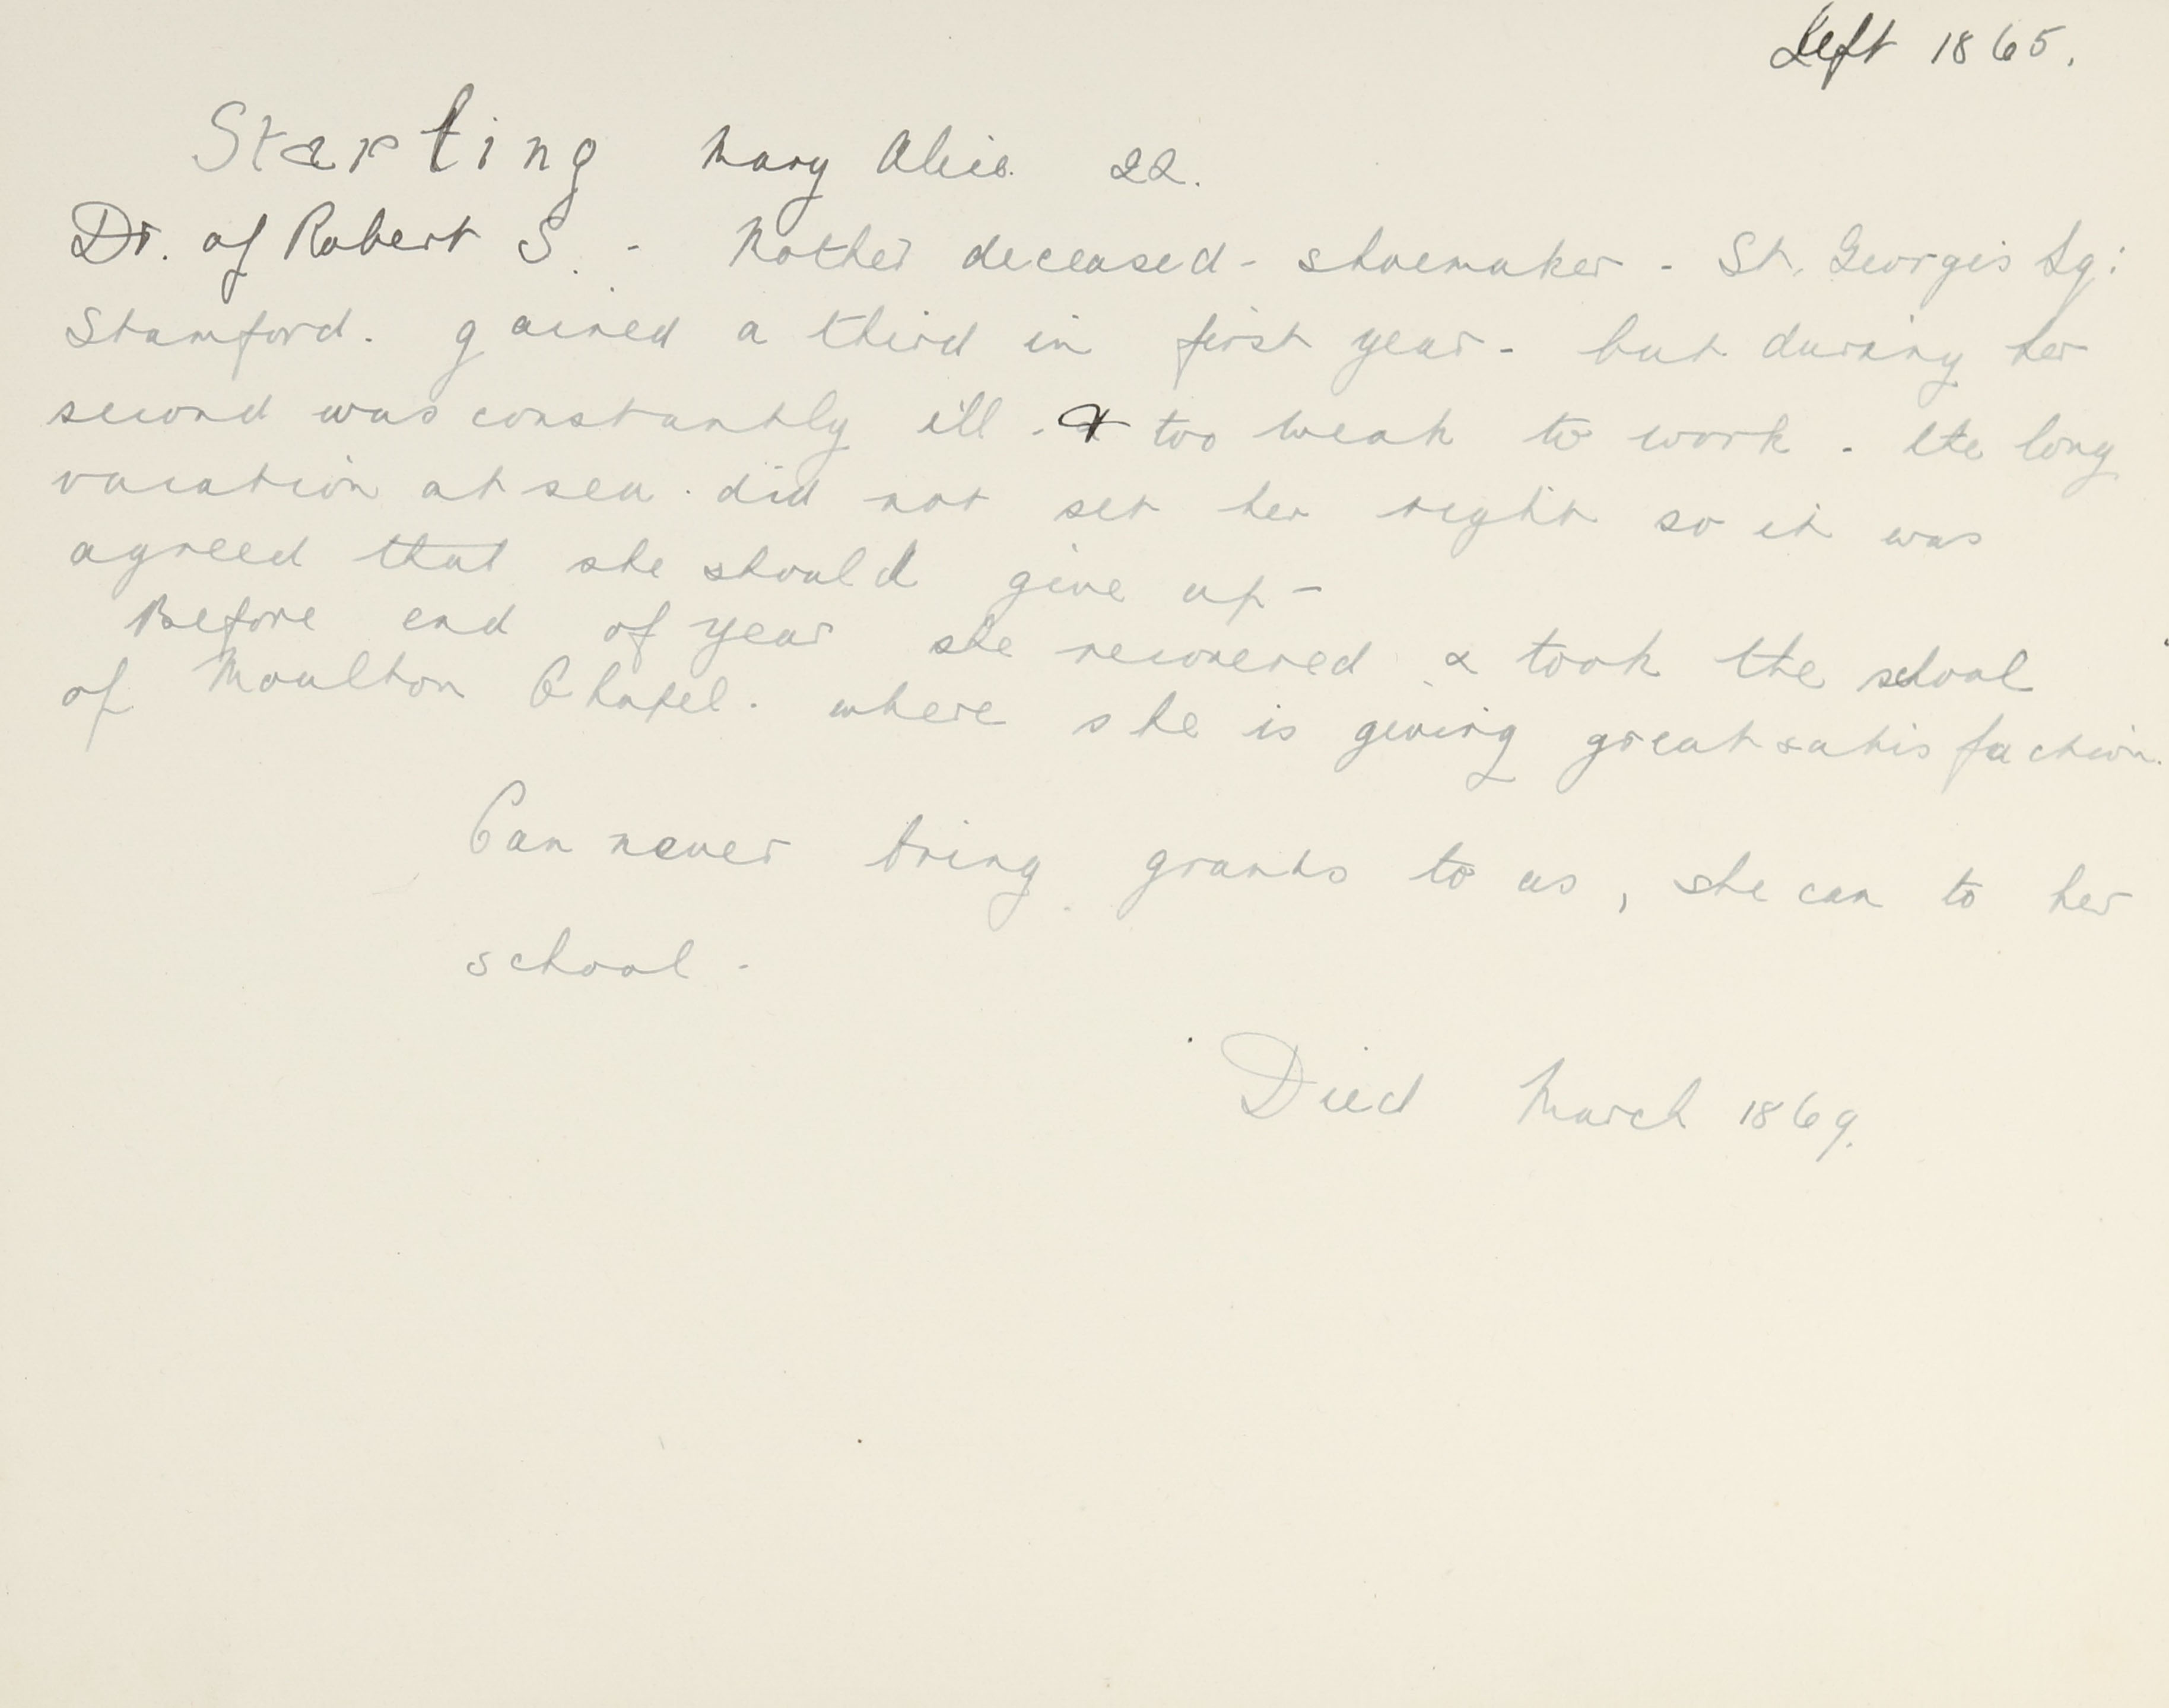 Left 1865.
Starting Mary Alice. 22.
Dr. of Robert S. - Mother deceased - shoemaker - St. Georges Sq:
Stamford. gained a third in first year - but during her
second was constantly ill - & too weak to work - the long
vacation at sea. did not set her right so it was
agreed that she should give up -
Before end of year she recovered & took the school
of Moulton Chapel. where she is giving great satisfaction.
Can never bring grants to us, she can to her
school -
Died March 1869.